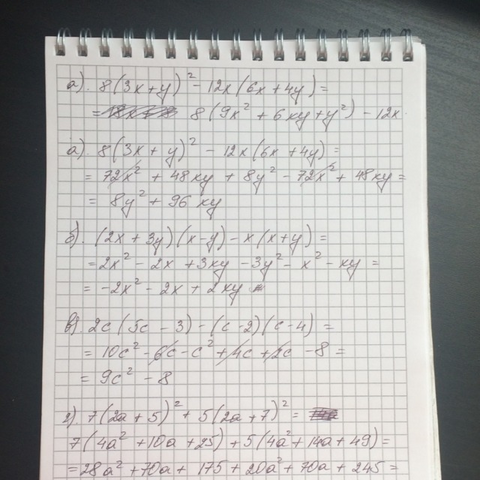 а). 8(3x+y)² - 12x(6x+4y) =
= 8(9x² + 6xy + y²) - 12x
а). 8(3x+y)² - 12x(6x+4y) =
= 72x² + 48xy + 8y² - 72x² + 48xy =
= 8y² + 96xy
б). (2x+3y)(x-y) - x(x+y) =
= 2x² - 2x + 3xy - 3y² - x² - xy =
= -2x² - 2x + 2xy
в) 2c(5c-3) - (c-2)(c-4) =
= 10c² - 6c - c² + 4c + 2c - 8 =
= 9c² - 8
г). 7(2a+5)² + 5(2a+7)² =
7(4a² + 10a + 25) + 5(4a² + 14a + 49) =
= 28a² + 70a + 175 + 20a² + 70a + 245 =